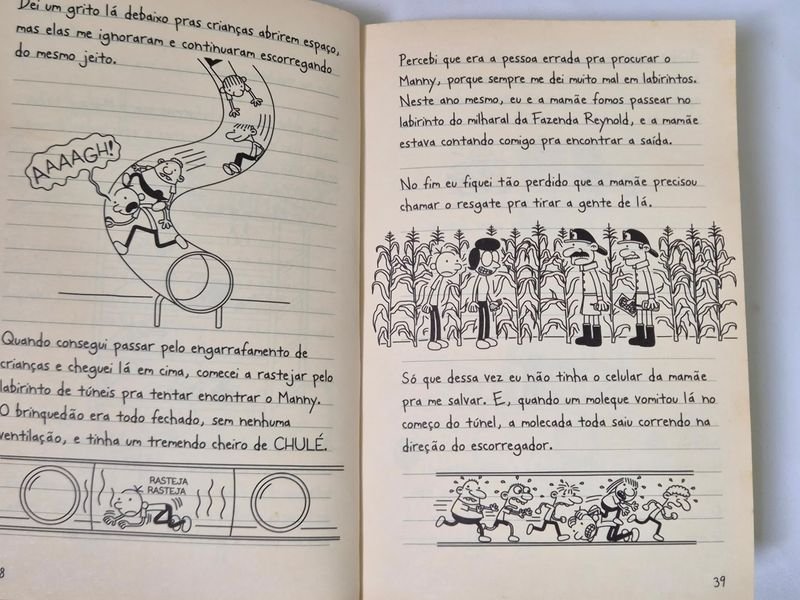 Dei um grito lá debaixo pras crianças abrirem espaço,
mas elas me ignoraram e continuaram escorregando
do mesmo jeito.
AAAAGH!
Quando consegui passar pelo engarrafamento de
crianças e cheguei lá em cima, comecei a rastejar pelo
labirinto de túneis pra tentar encontrar o Manny.
O brinquedão era todo fechado, sem nenhuma
ventilação, e tinha um tremendo cheiro de CHULÉ.
RASTEJA
RASTEJA
8
Percebi que era a pessoa errada pra procurar o
Manny, porque sempre me dei muito mal em labirintos.
Neste ano mesmo, eu e a mamãe fomos passear no
labirinto do milharal da Fazenda Reynold, e a mamãe
estava contando comigo pra encontrar a saída.
No fim eu fiquei tão perdido que a mamãe precisou
chamar o resgate pra tirar a gente de lá.
Só que dessa vez eu não tinha o celular da mamãe
pra me salvar. E, quando um moleque vomitou lá no
começo do túnel, a molecada toda saiu correndo na
direção do escorregador.
39